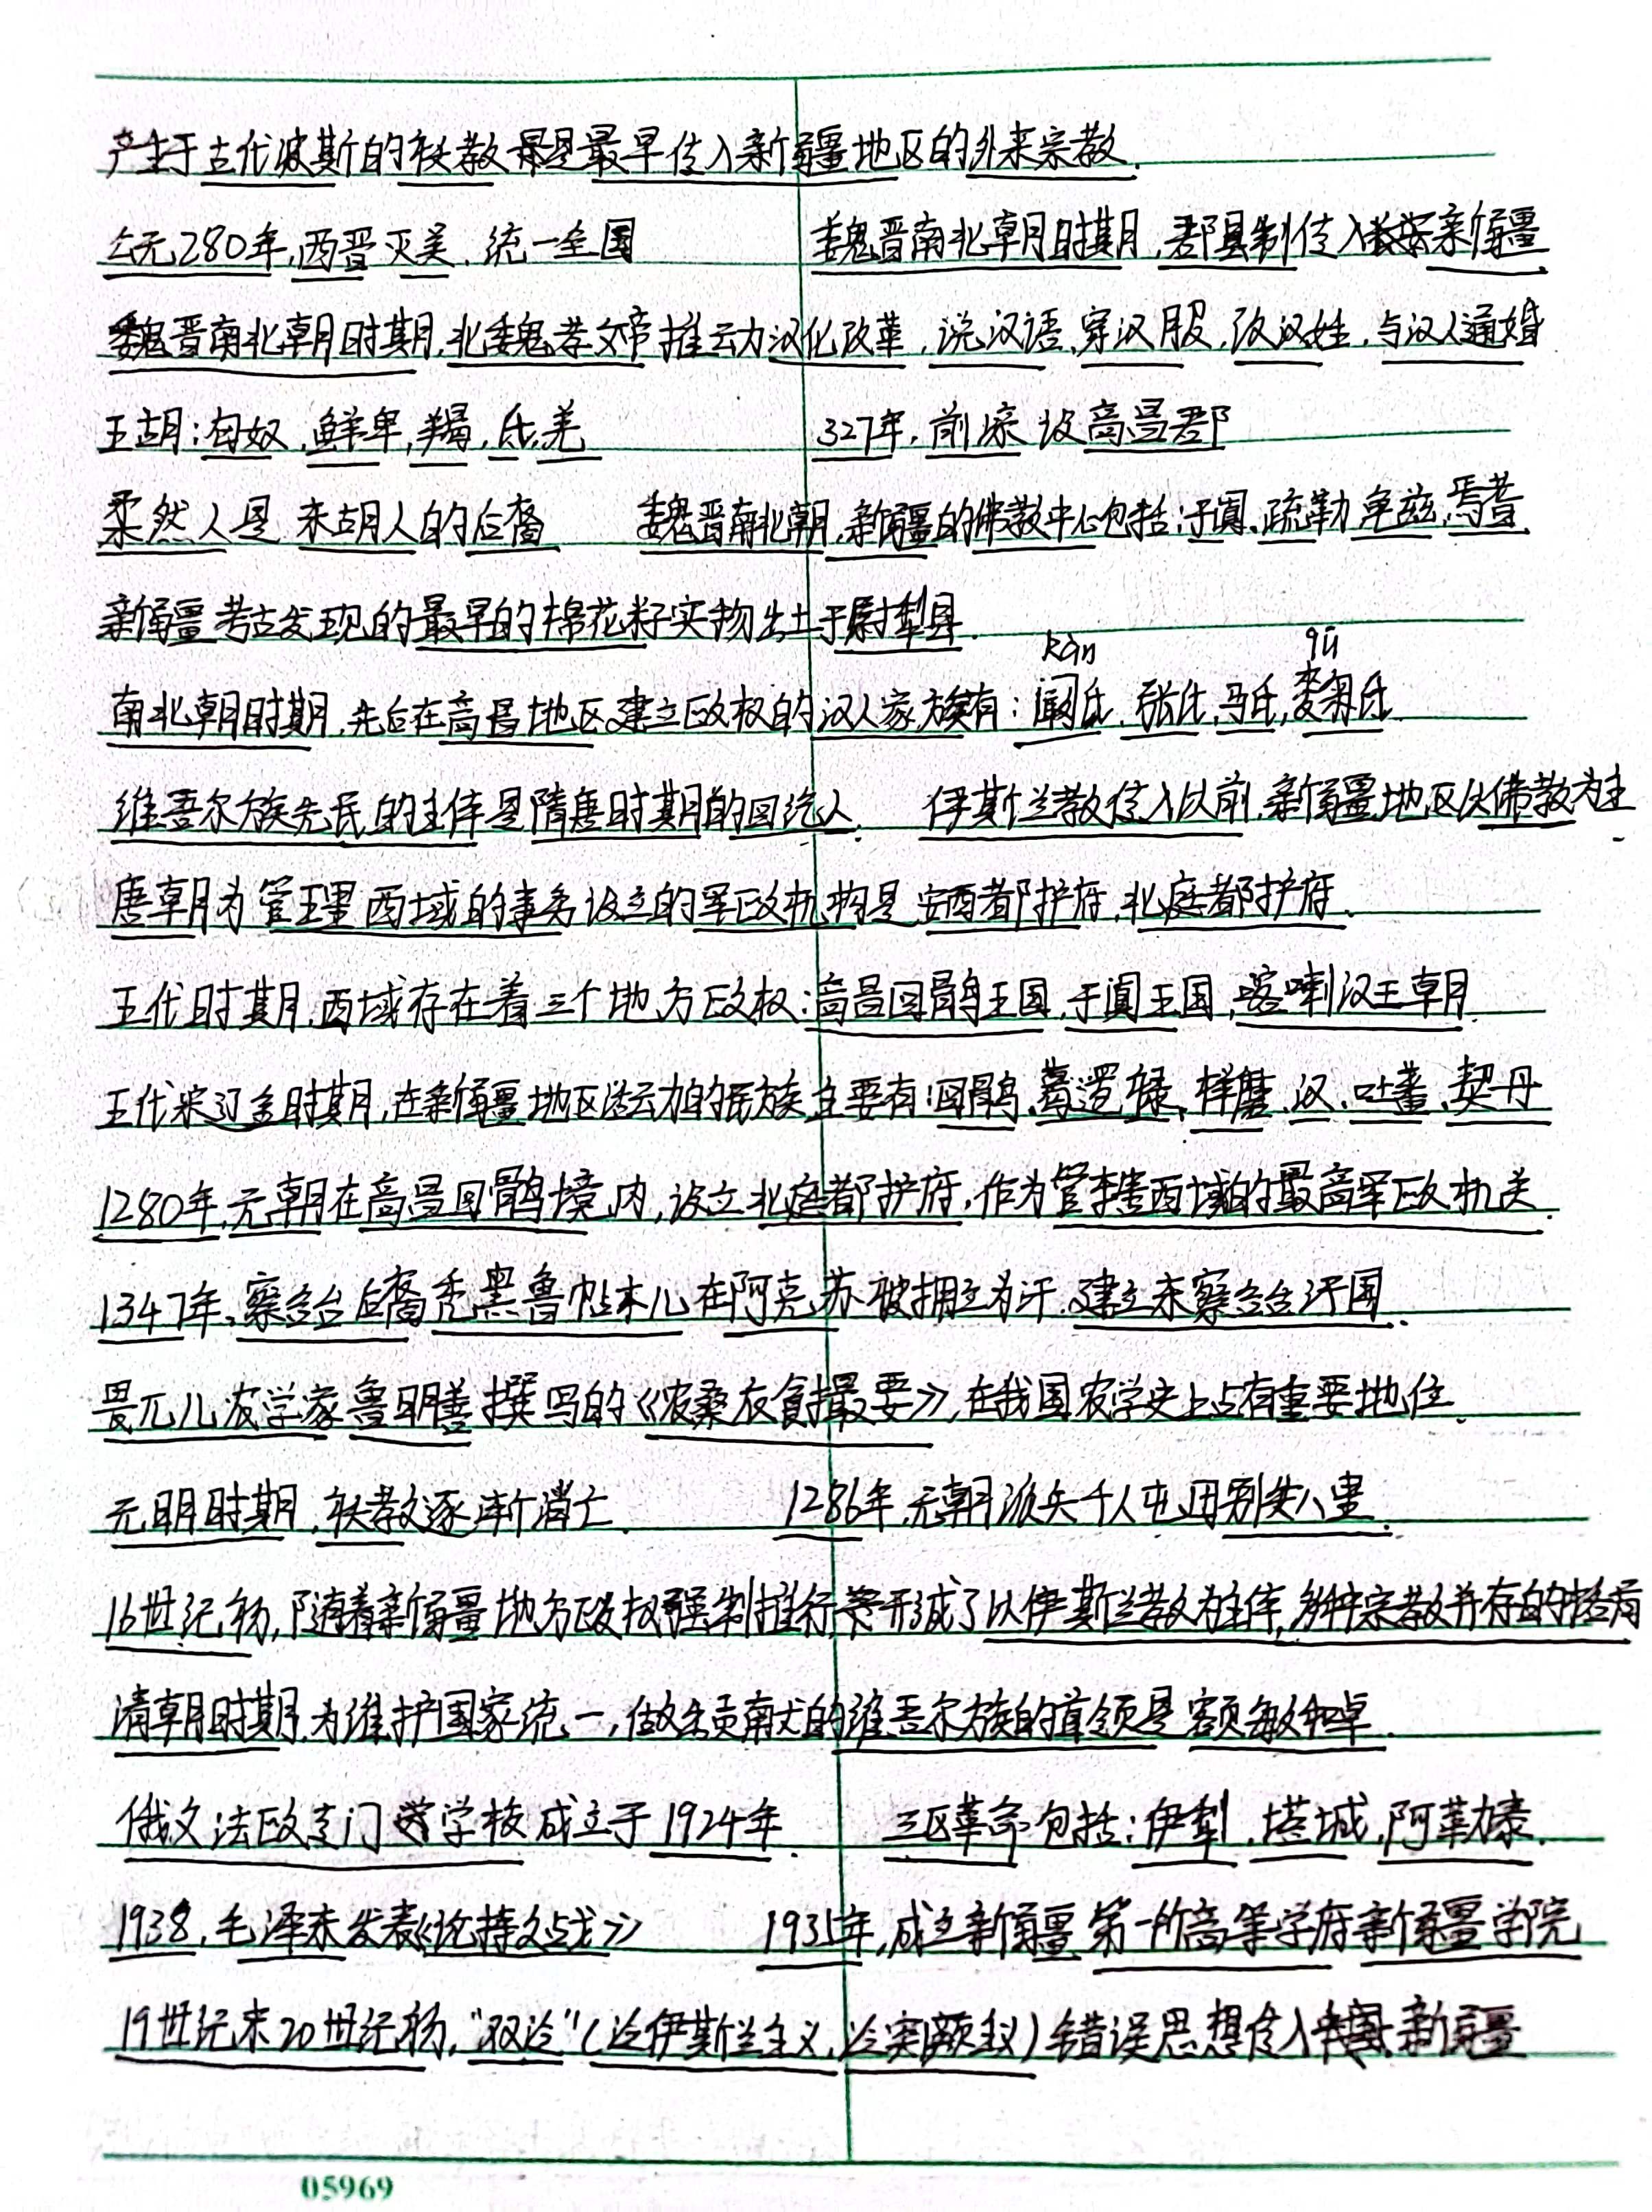 产生于古代波斯的祆教是最早传入新疆地区的外来宗教.
公元280年,西晋灭吴,统一全国 魏晋南北朝时期,郡县制传入新疆
魏晋南北朝时期,北魏孝文帝推动汉化改革,说汉语,穿汉服,改汉姓,与汉人通婚
五胡:匈奴,鲜卑,羯,氐,羌 327年,前凉设高昌郡
柔然人是东胡人的后裔 魏晋南北朝,新疆的佛教中心包括:于阗、疏勒、龟兹,焉耆
新疆考古发现的最早的棉花籽实物出土于尉犁县.
kàn qū
南北朝时期,先后在高昌地区建立政权的汉人家族有:阚氏,张氏,马氏,麴氏
维吾尔族先民的主体是隋唐时期的回纥人. 伊斯兰教传入以前,新疆地区以佛教为主
唐朝为管理西域的事务设立的军政机构是安西都护府,北庭都护府.
五代时期,西域存在着三个地方政权:高昌回鹘王国,于阗王国,喀喇汉王朝
五代宋辽金时期,在新疆地区活动的民族主要有:回鹘、葛逻禄、样磨、汉、吐蕃、契丹
1280年,元朝在高昌回鹘境内,设立北庭都护府,作为管辖西域的最高军政机关.
1347年,察合台后裔秃黑鲁帖木儿在阿克苏被拥立为汗,建立东察合台汗国.
畏兀儿农学家鲁明善撰写的《农桑衣食撮要》,在我国农学史上占有重要地位.
元明时期,祆教逐渐消亡. 1286年,元朝派兵千人屯田别失八里.
16世纪初,随着新疆地方政权强制推行等形成了以伊斯兰教为主体,多种宗教并存的格局
清朝时期,为维护国家统一,做出贡献的维吾尔族的首领是额敏和卓.
俄文法政专门学校成立于1924年. 三区革命包括:伊犁,塔城,阿勒泰.
1938,毛泽东发表《论持久战》 1935年,成立新疆第一所高等学府新疆学院
19世纪末20世纪初,"双泛"(泛伊斯兰主义,泛突厥主义)错误思想传入新疆
05969